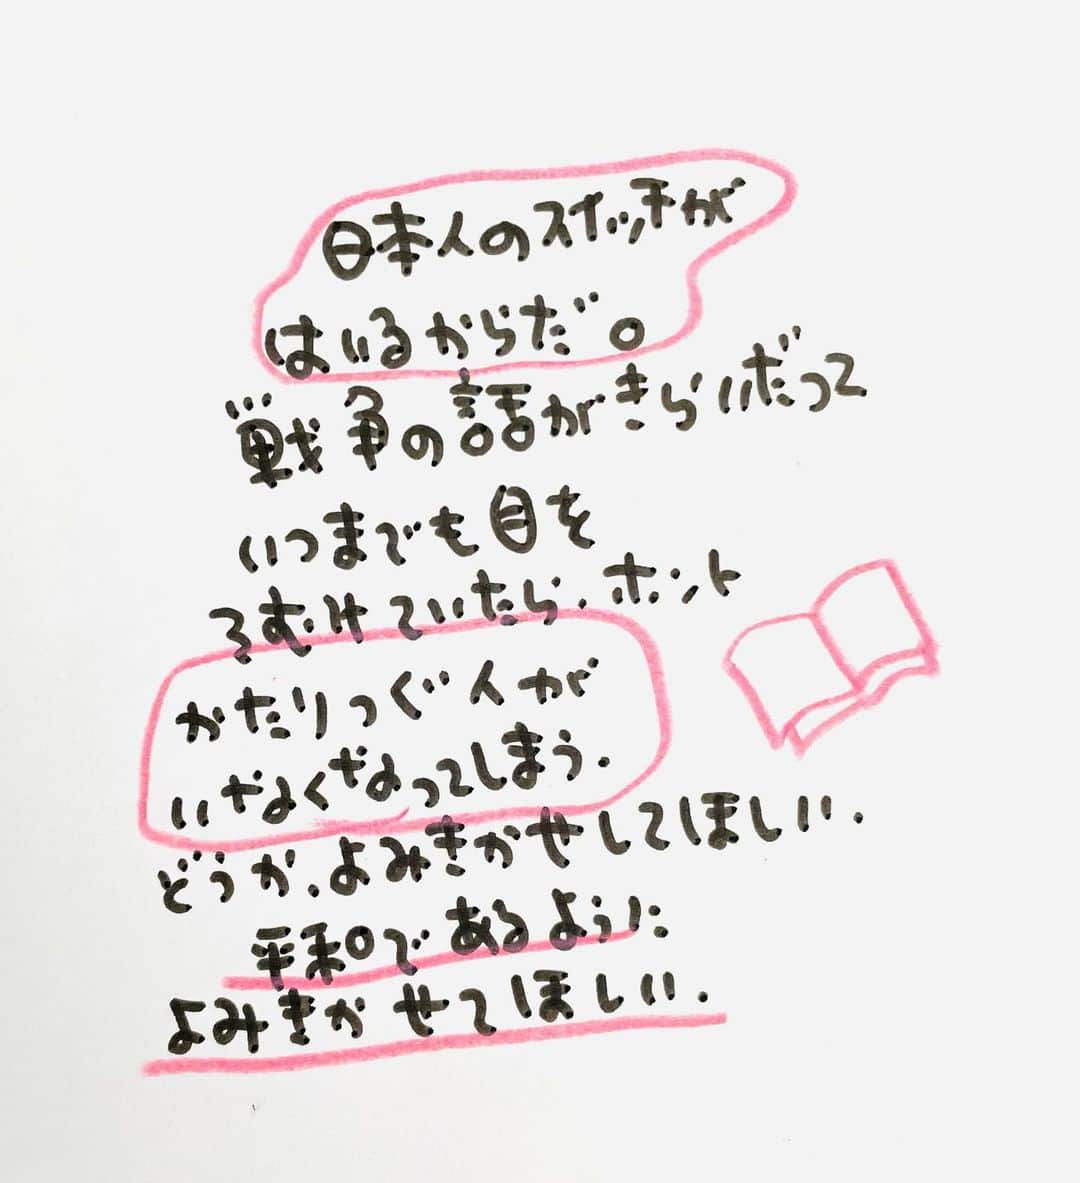 日本人のスイッチが
はいるからだ。
戦争の話がきらいだって
いつまでも目を
そむけていたら.ホント
かたりつぐ人が
いなくなってしまう.
どうか.よみきかせしてほしい.
平和であるように
よみきかせてほしい.